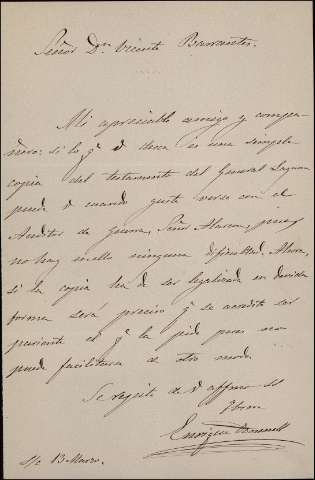 Señor Dn. Vicente Barrantes.
Mi apreciable amigo y compa-
ñero: si lo q. V desea es una simple
copia del testamento del General Lagunas
puede V cuando guste verse con el
Auditor de Guerra, Señor Alarcon, pues
no hay en ello ninguna dificultad. Ahora,
si la copia ha de ser legalizada en devida
forma será preciso q. se acredite ser
pariente el q. la pida pues no
puede facilitarse de otro modo.
Se repite de V affmo SS
Enrique
S/c 13 Marzo.